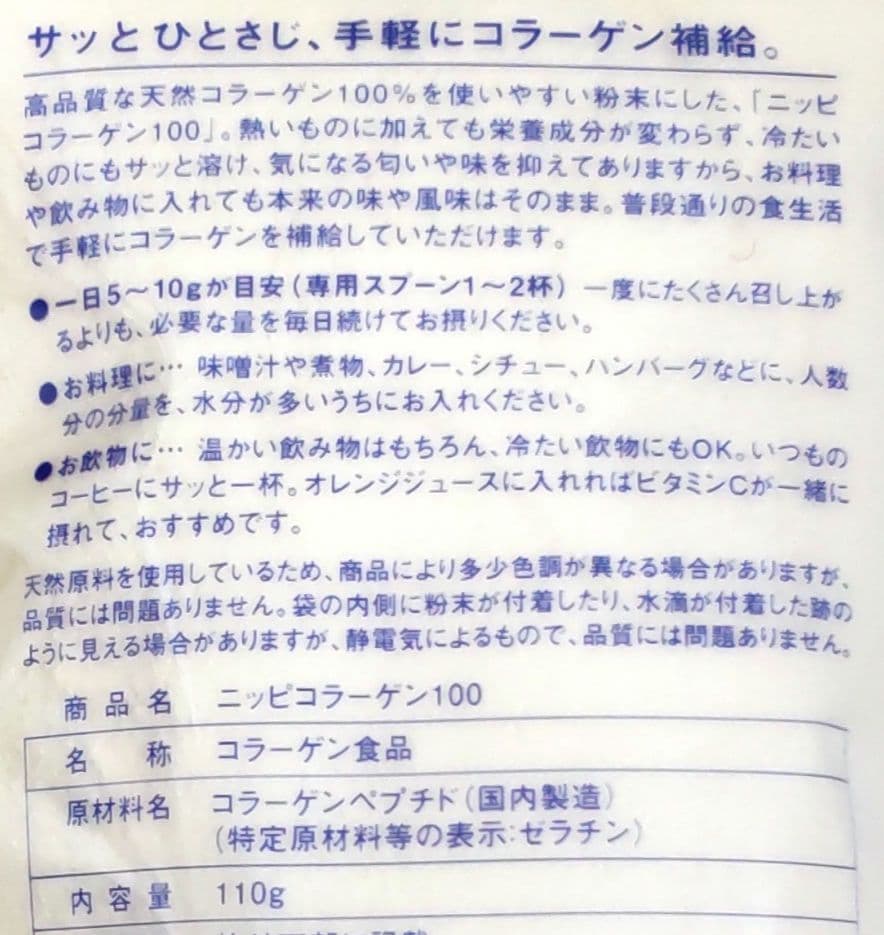 サッとひとさじ、手軽にコラーゲン補給。
高品質な天然コラーゲン100%を使いやすい粉末にした、「ニッピ
コラーゲン100」。熱いものに加えても栄養成分が変わらず、冷たい
ものにもサッと溶け、気になる匂いや味を抑えてありますから、お料理
や飲み物に入れても本来の味や風味はそのまま。普段通りの食生活
で手軽にコラーゲンを補給していただけます。
●一日5〜10gが目安(専用スプーン1〜2杯) 一度にたくさん召し上が
るよりも、必要な量を毎日続けてお摂りください。
●お料理に… 味噌汁や煮物、カレー、シチュー、ハンバーグなどに、人数
分の分量を、水分が多いうちにお入れください。
●お飲物に… 温かい飲み物はもちろん、冷たい飲物にもOK。いつもの
コーヒーにサッと一杯。オレンジジュースに入れればビタミンCが一緒に
摂れて、おすすめです。
天然原料を使用しているため、商品により多少色調が異なる場合がありますが、
品質には問題ありません。袋の内側に粉末が付着したり、水滴が付着した跡の
ように見える場合がありますが、静電気によるもので、品質には問題ありません。
商品名 ニッピコラーゲン100
名称 コラーゲン食品
原材料名 コラーゲンペプチド(国内製造)
(特定原材料等の表示:ゼラチン)
内容量 110g